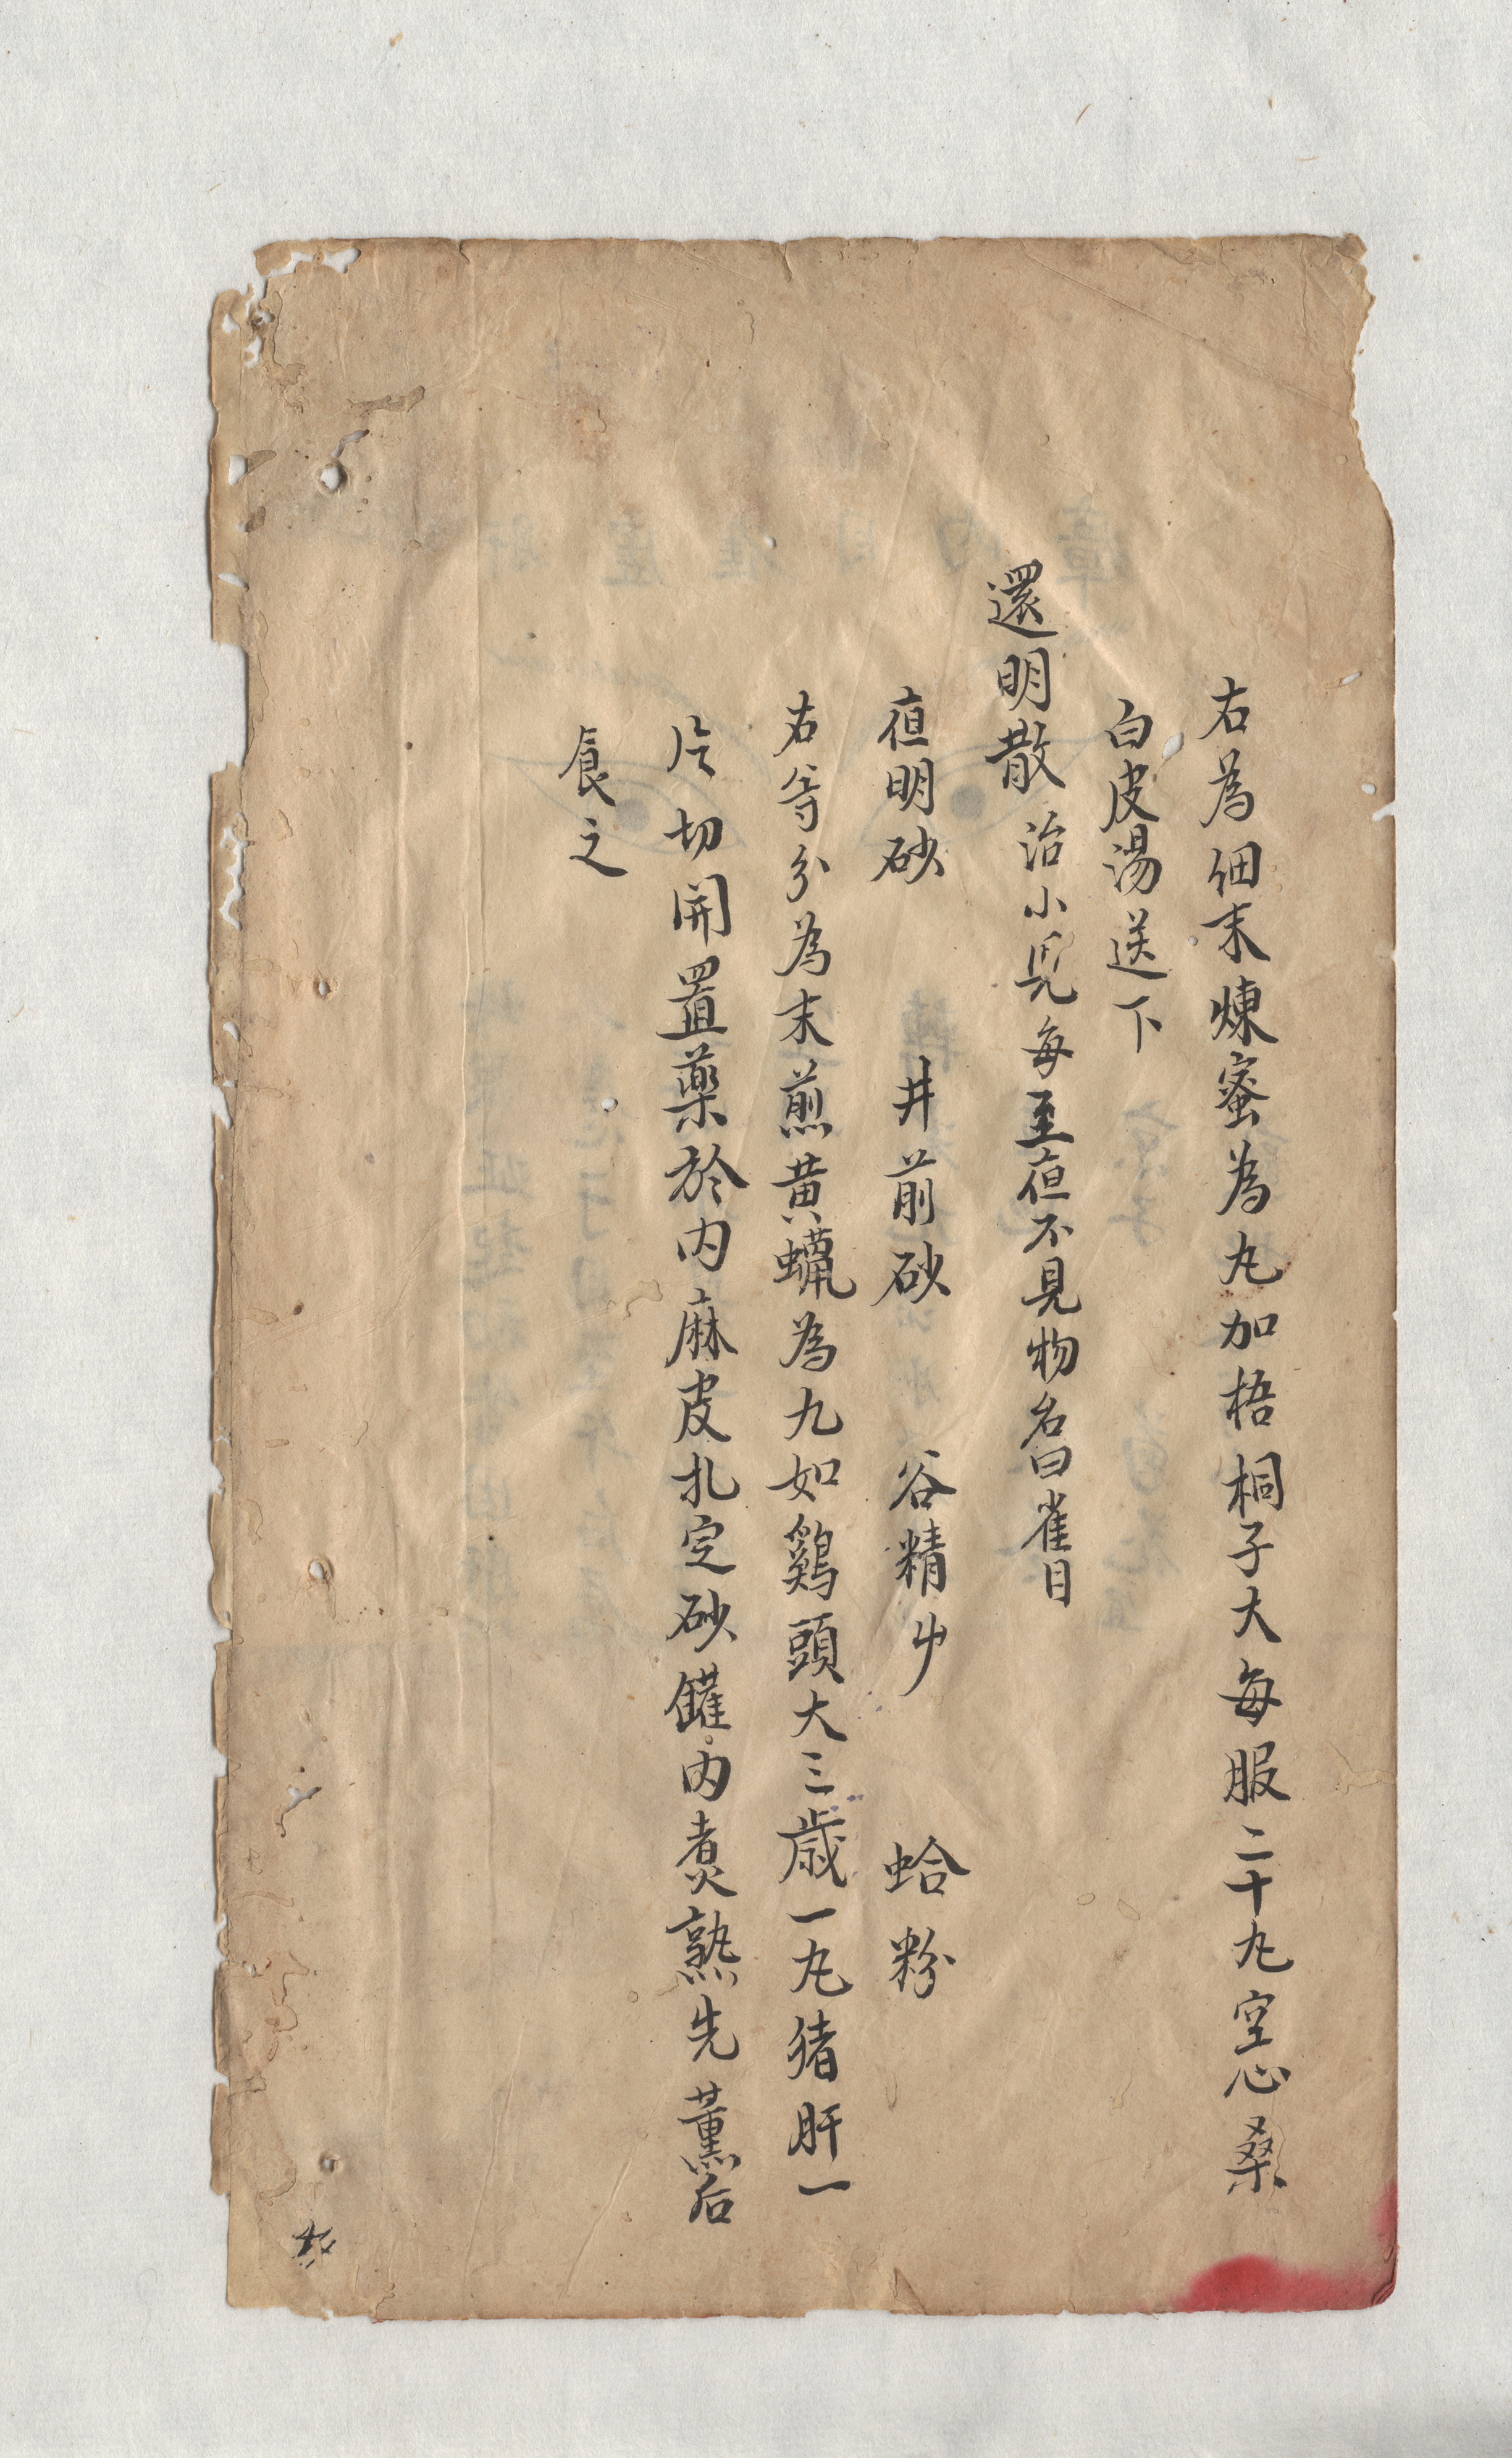 右為細末煉蜜為丸加梧桐子大每服二十丸空心桑
白皮湯送下
還明散治小兒每至夜不見物名曰雀目
夜明砂 井前砂 谷精艸 蛤粉
右等分為末煎黄蠟為九如鷄頭大三歲一丸猪肝一
片切開置藥於内麻皮扎定砂鑵内煑熟先薰后
食之